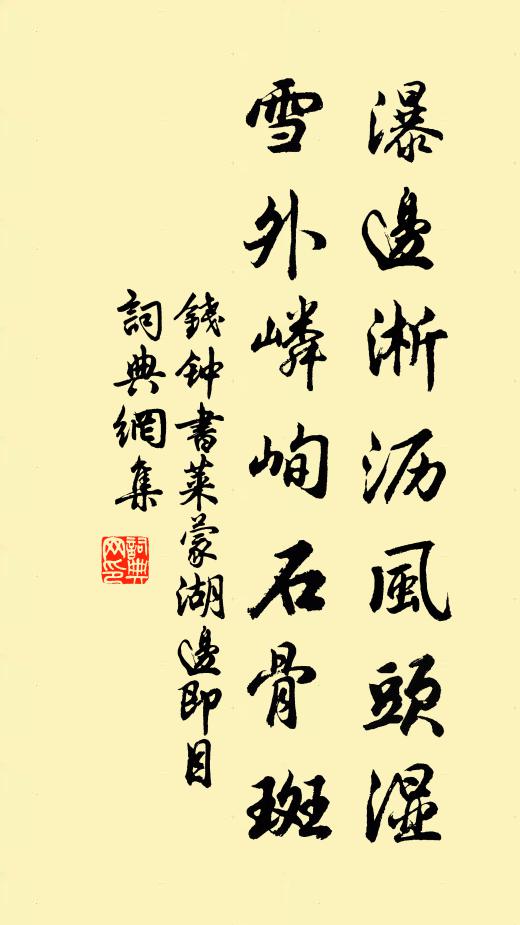 瀑邊淅沥風頭湿
雪外嶙峋石骨斑
錢钟書莱蒙湖邊即目
詞典網集
詞典网印